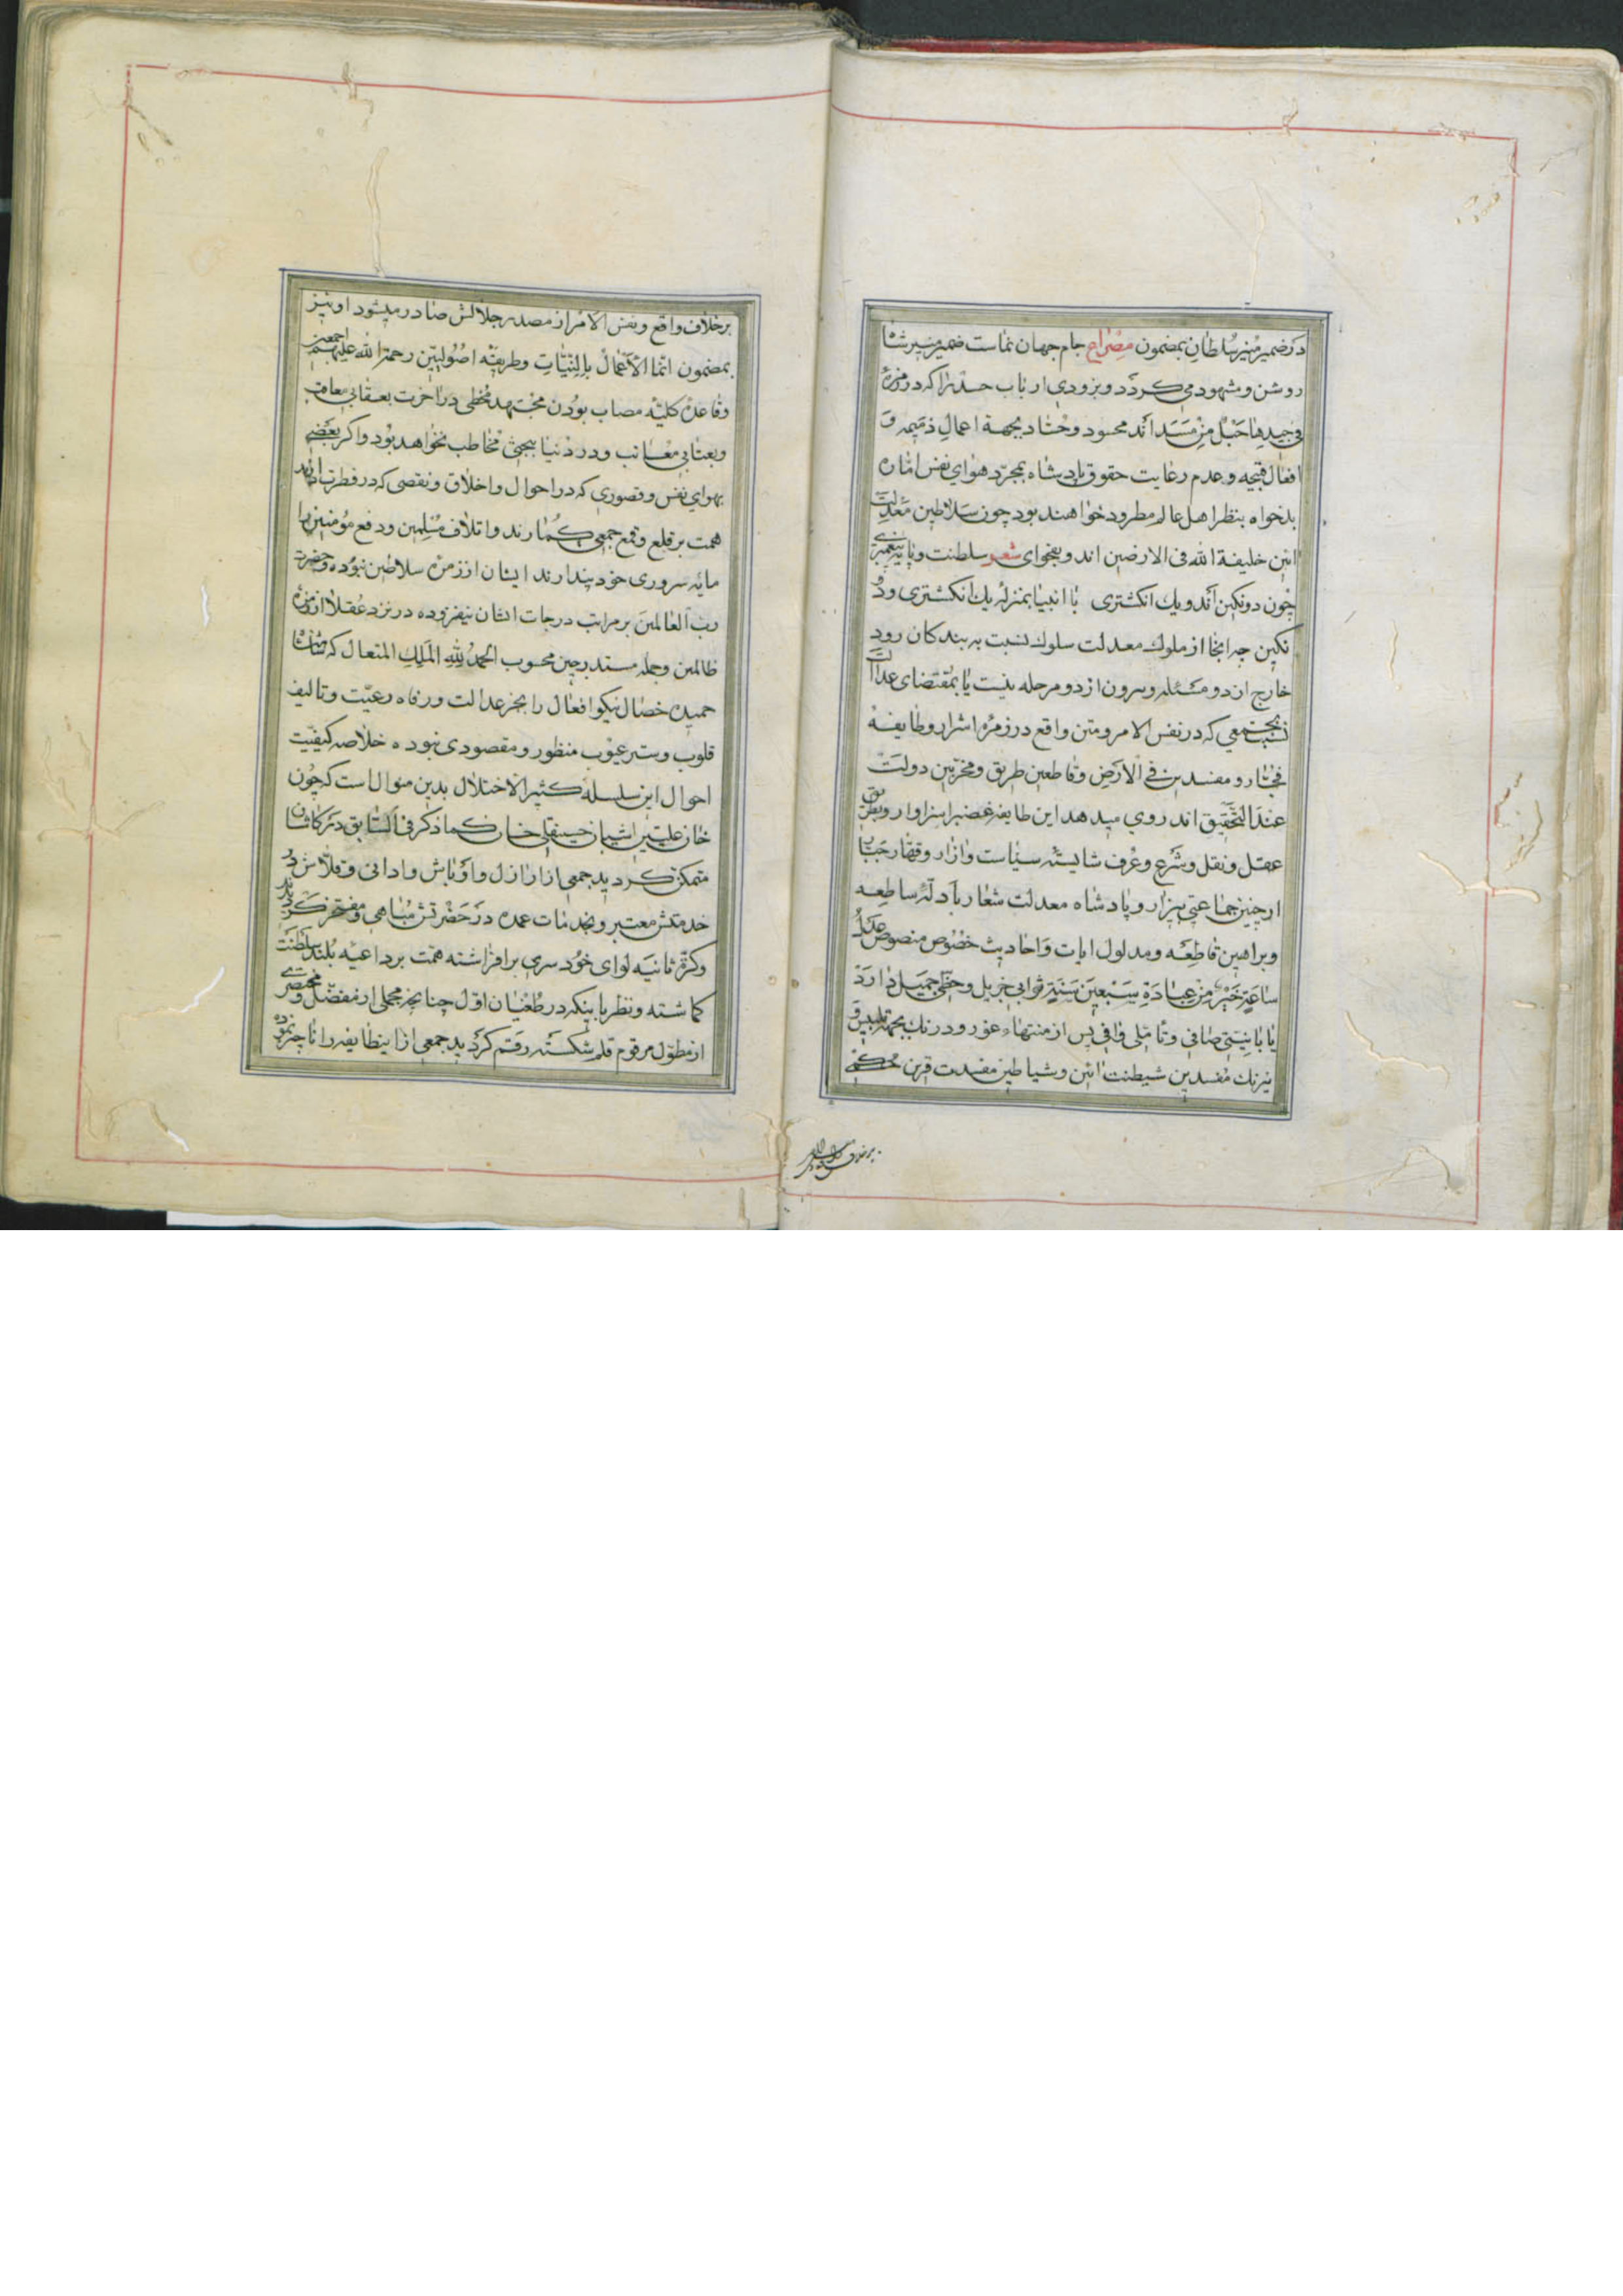 در ضمیر منیر سلطان بمضمون مصراع جام جهان نماست ضمیر منیر شما
روشن و مشهود می کردد و بزودی ارباب حسد را که در زمره
فی جیدها حبل من مسد اند محسود و حساد بجهة اعمال ذمیمه و
افعال قبیحه و عدم رعایت حقوق پادشاه بمجرد هوای نفس اماره
بدخواه بنظر اهل عالم مطرود خواهند بود چون سلاطین معدلت
ائین خلیفة الله فی الارضین اند و بفحوای شعر سلطنت و پایه پیغمبری
چون دو نکین اند و یك انکشتری با انبیا بمنزله یك انکشتری و دو
نکین چه ایخا از ملوك معدلت سلوك نسبت به بندکان رود
خارج از دو مسئله و بیرون از دو مرحله نیست یا بمقتضای عدالت
نسبت بجمعی که در نفس الامر و متن واقع در زمره اشرار و طایفه
فجار و مفسدین فی الارض و قاطعین طریق و مخربین دولت
عند التحقیق اند روی میدهد این طایفه غضب را سزاوار و بطریق
عقل و نقل و شرع و عرف شایسته سیاست و ازار و قهار جبار
ازچنین جماعتی بیزار و پادشاه معدلت شعار بادله ساطعه
و براهین قاطعه و مدلول ایات و احادیث خصوص منصوص عدل
ساعة خیر من عبادة سبعین سنة ثوابی جزیل و حظی جمیل دارد
یا با نیتی صافی و تاملی وافی پس از منتهاء غور و درنك بجهة تلبیس و
نیرنك مفسدین شیطنت ائین و شیاطین مفسدت قرین حکمی
بر خلاف واقع و نفس الامر از مصدر جلالش صادر میشود او نیز
بمضمون انما الاعمال بالنیات و طریقه اصولیین رحمة الله علیهم اجمعین
و قاعده کلیه مصاب بودن مجتهد مخطی در اخرت بعقابی معاقب
و بعتابی معاتب و در دنیا ببحثی مخاطب نخواهد بود و اکر بعضی
بهوای نفس و قصوری که در احوال و اخلاق و نقصی که در فطرت دارند
همت بر قلع و قمع جمعی کمارند و اتلاف مسلمین و دفع مؤمنین را
مایه سروری خود پندارند ایشان از زمره سلاطین نبوده و حضرت
رب العالمین بر مراتب درجات ایشان نیفزوده در نزد عقلا از زمره
ظالمین و جمله مستدرجین محسوب الحمد لله الملك المتعال که
حمیده خصال نیکو افعال را بجز عدالت و رفاه رعیت و تالیف
قلوب و ستر عیوب منظور و مقصودی نبوده خلاصه کیفیت
احوال این سلسله کثیر الاختلال بدین منوال است که چون
خان علیین اشیان حسینقلی خان کما ذکر فی السابق در کاشان
متمکن کردید جمعی از اراذل و اوباش و ادانی و قلاش در
خدمتش معتبر و بخدمات عمده در حضرتش مباهی و مفتخر کردیدند
و کرة ثانیه لوای خود سری برافراشته همت بر داعیه بلند سلطنت
کماشته و نظر باینکه در طغیان اول چنانچه مجملی از مفصل و مختصری
از مطول مرقوم قلم شکسته رقم کردید جمعی از اینطایفه را ناچیز نموده